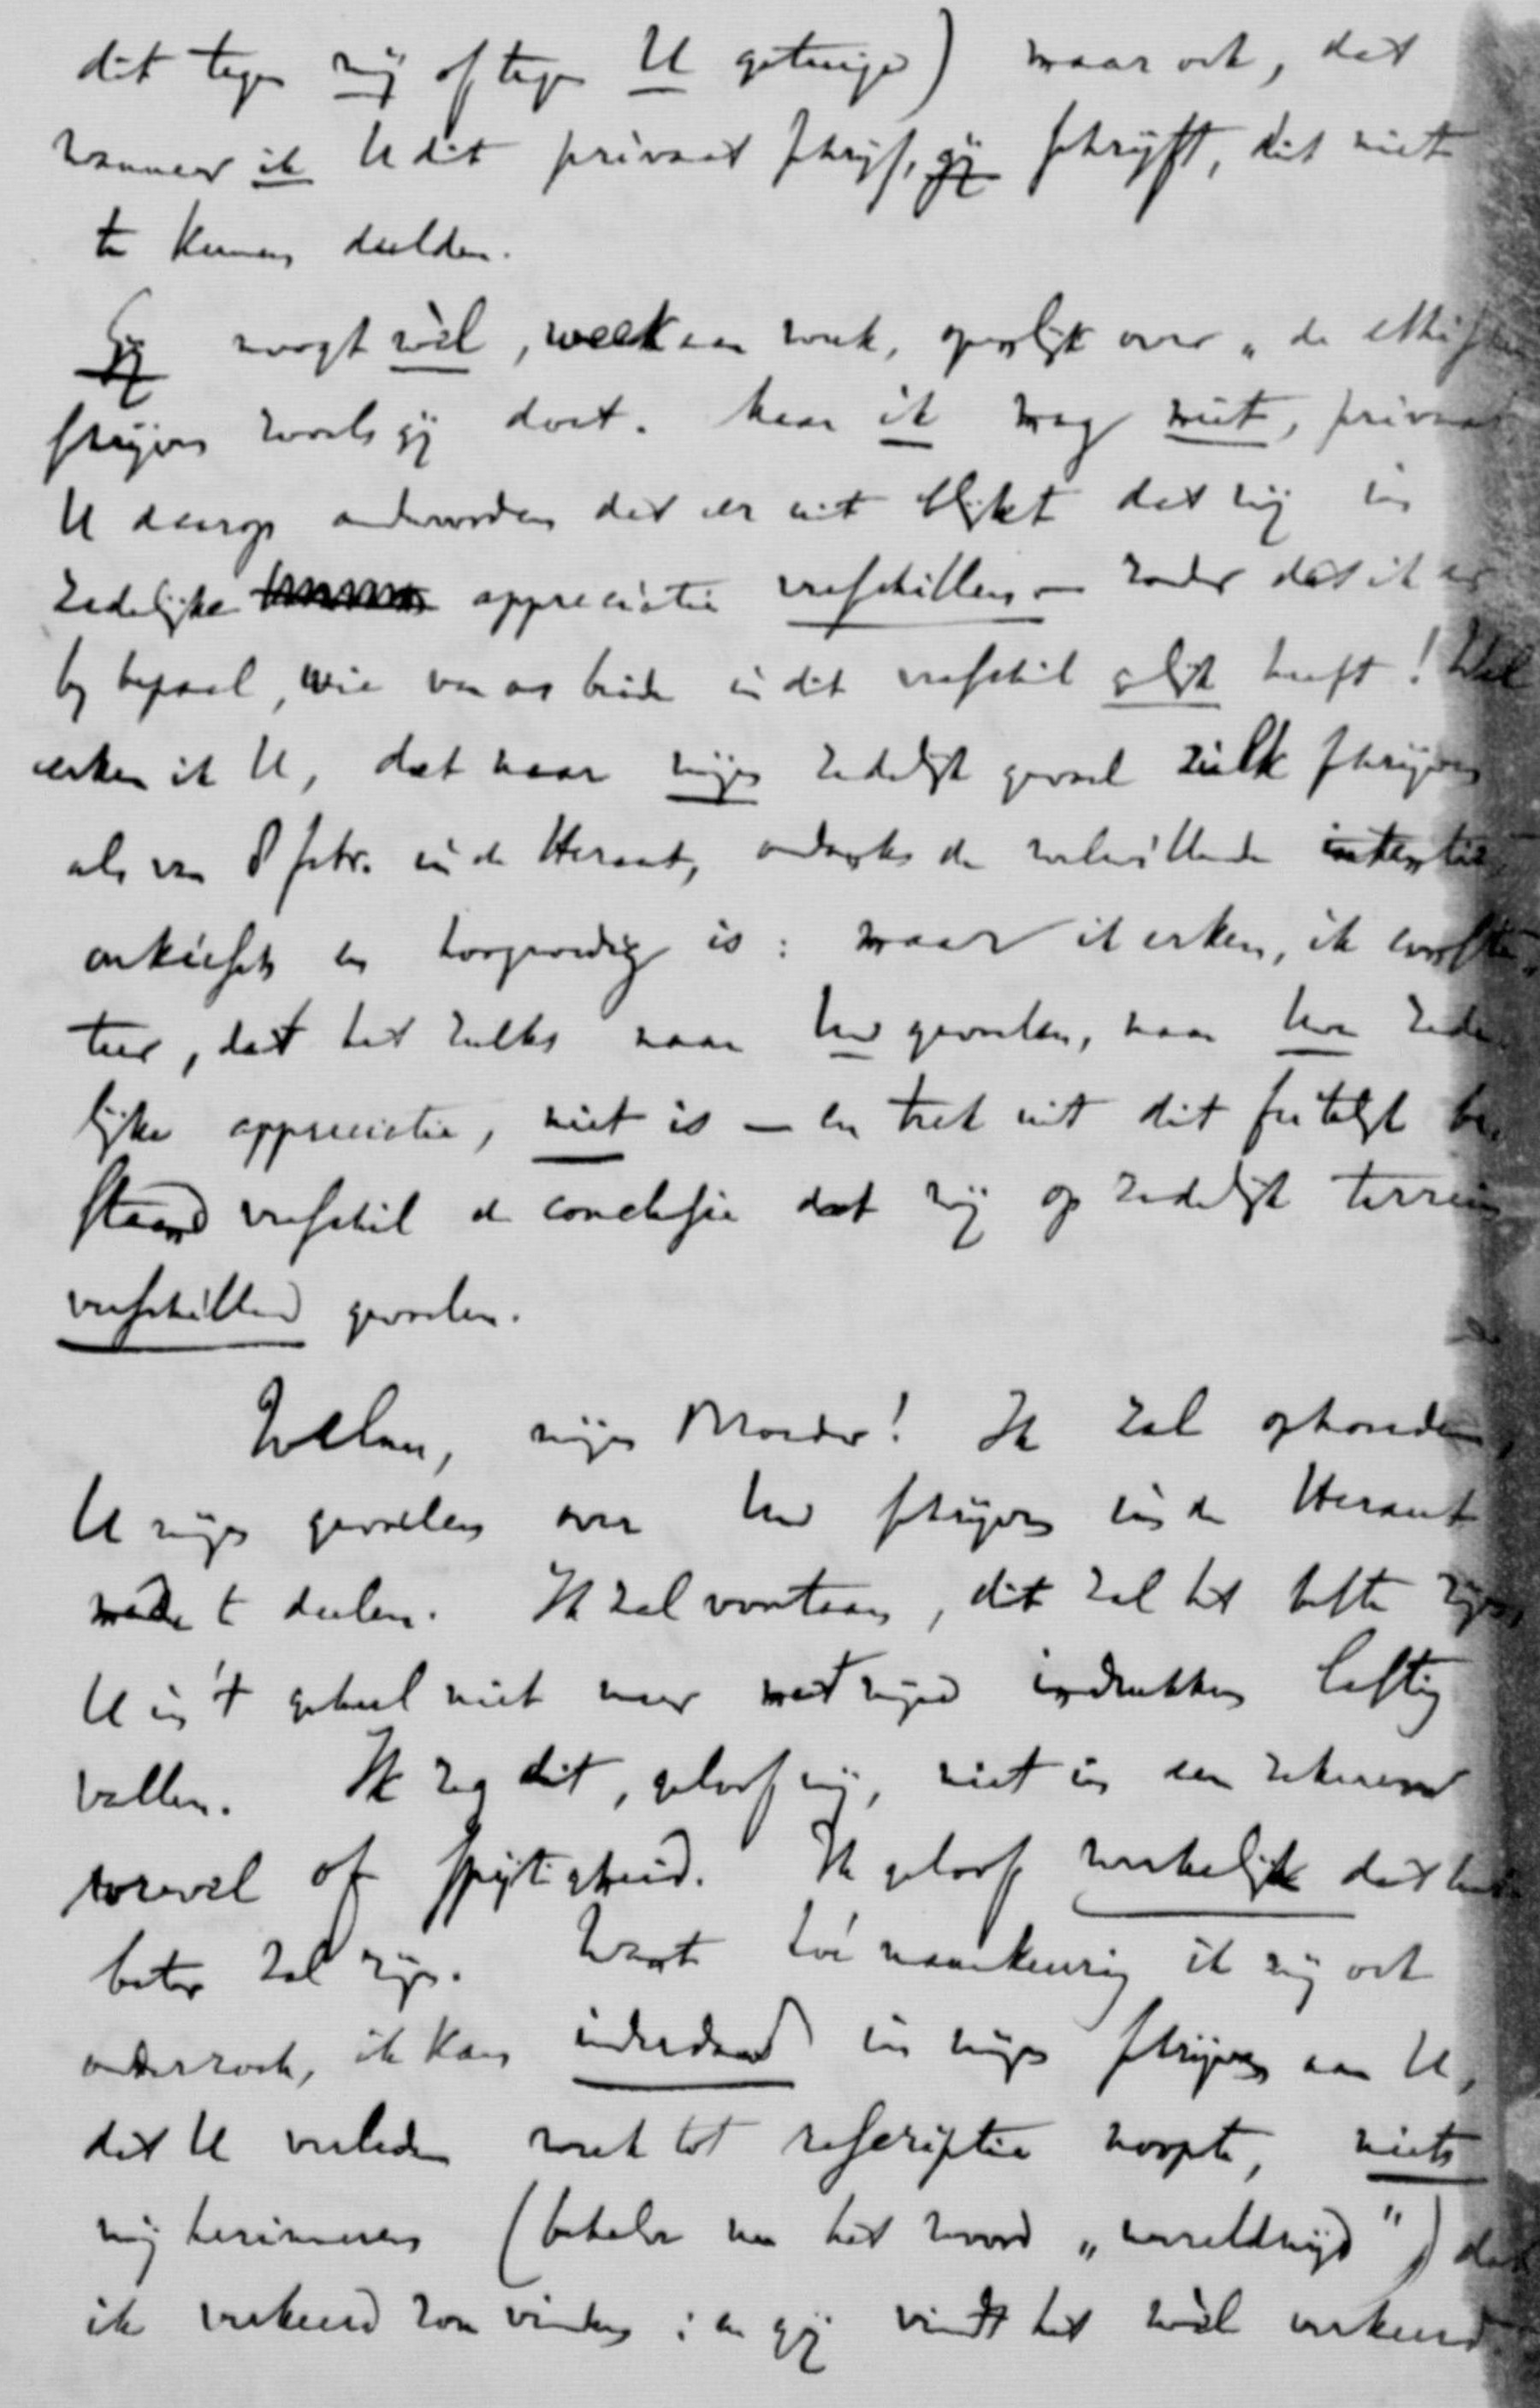 dit tegen mij of tegen U getuige) maar ook, dat
wanneer ik U dit privaat schrijf, gij schrijft, dit niet
te kunnen dulden.
Gij moogt wèl, week aan week, openlijk over „de ethischen
schrijven zooals gij doet. Maar ik mag niet, privaat
U daarop antwoorden dat er uit blijkt dat wij in
zedelijke appreciatie verschillen — zonder dat ik er
bij bepaal, wie van ons beide in dit verschil gelijk heeft! Wel
erken ik U, dat naar mijn zedelijk gevoel zulk schrijven
als van 8 febr. in de Heraut, ondanks de welwillende intentie,
onkiesch en hoogmoedig is: maar ik erken, ik consta-
teer, dat het zulks naar Uw gevoelen, naar Uw zede-
lijke appreciatie, niet is — en trek uit dit feitelijk be-
staand verschil de conclusie dat wij op zedelijk terrein
verschillend gevoelen.
Welnu, mijn Broeder! Ik zal ophouden,
U mijn gevoelen over Uw schrijven in de Heraut
mede te deelen. Ik zal voortaan, dit zal het beste zijn,
U in 't geheel niet meer met mijne indrukken lastig
vallen. Ik zeg dit, geloof mij, niet in een zekeren
wrevel of spijtigheid. Ik geloof werkelijk dat het
beter zal zijn. Want hoe nauwkeurig ik mij ook
onderzoek, ik kan inderdaad in mijn schrijven aan U,
dat U verleden week tot rescriptie noopte, niets
mij herinneren (behalve nu het woord „wereldwijd") dat
ik verkeerd zou vinden: en gij vindt het wèl verkeerd